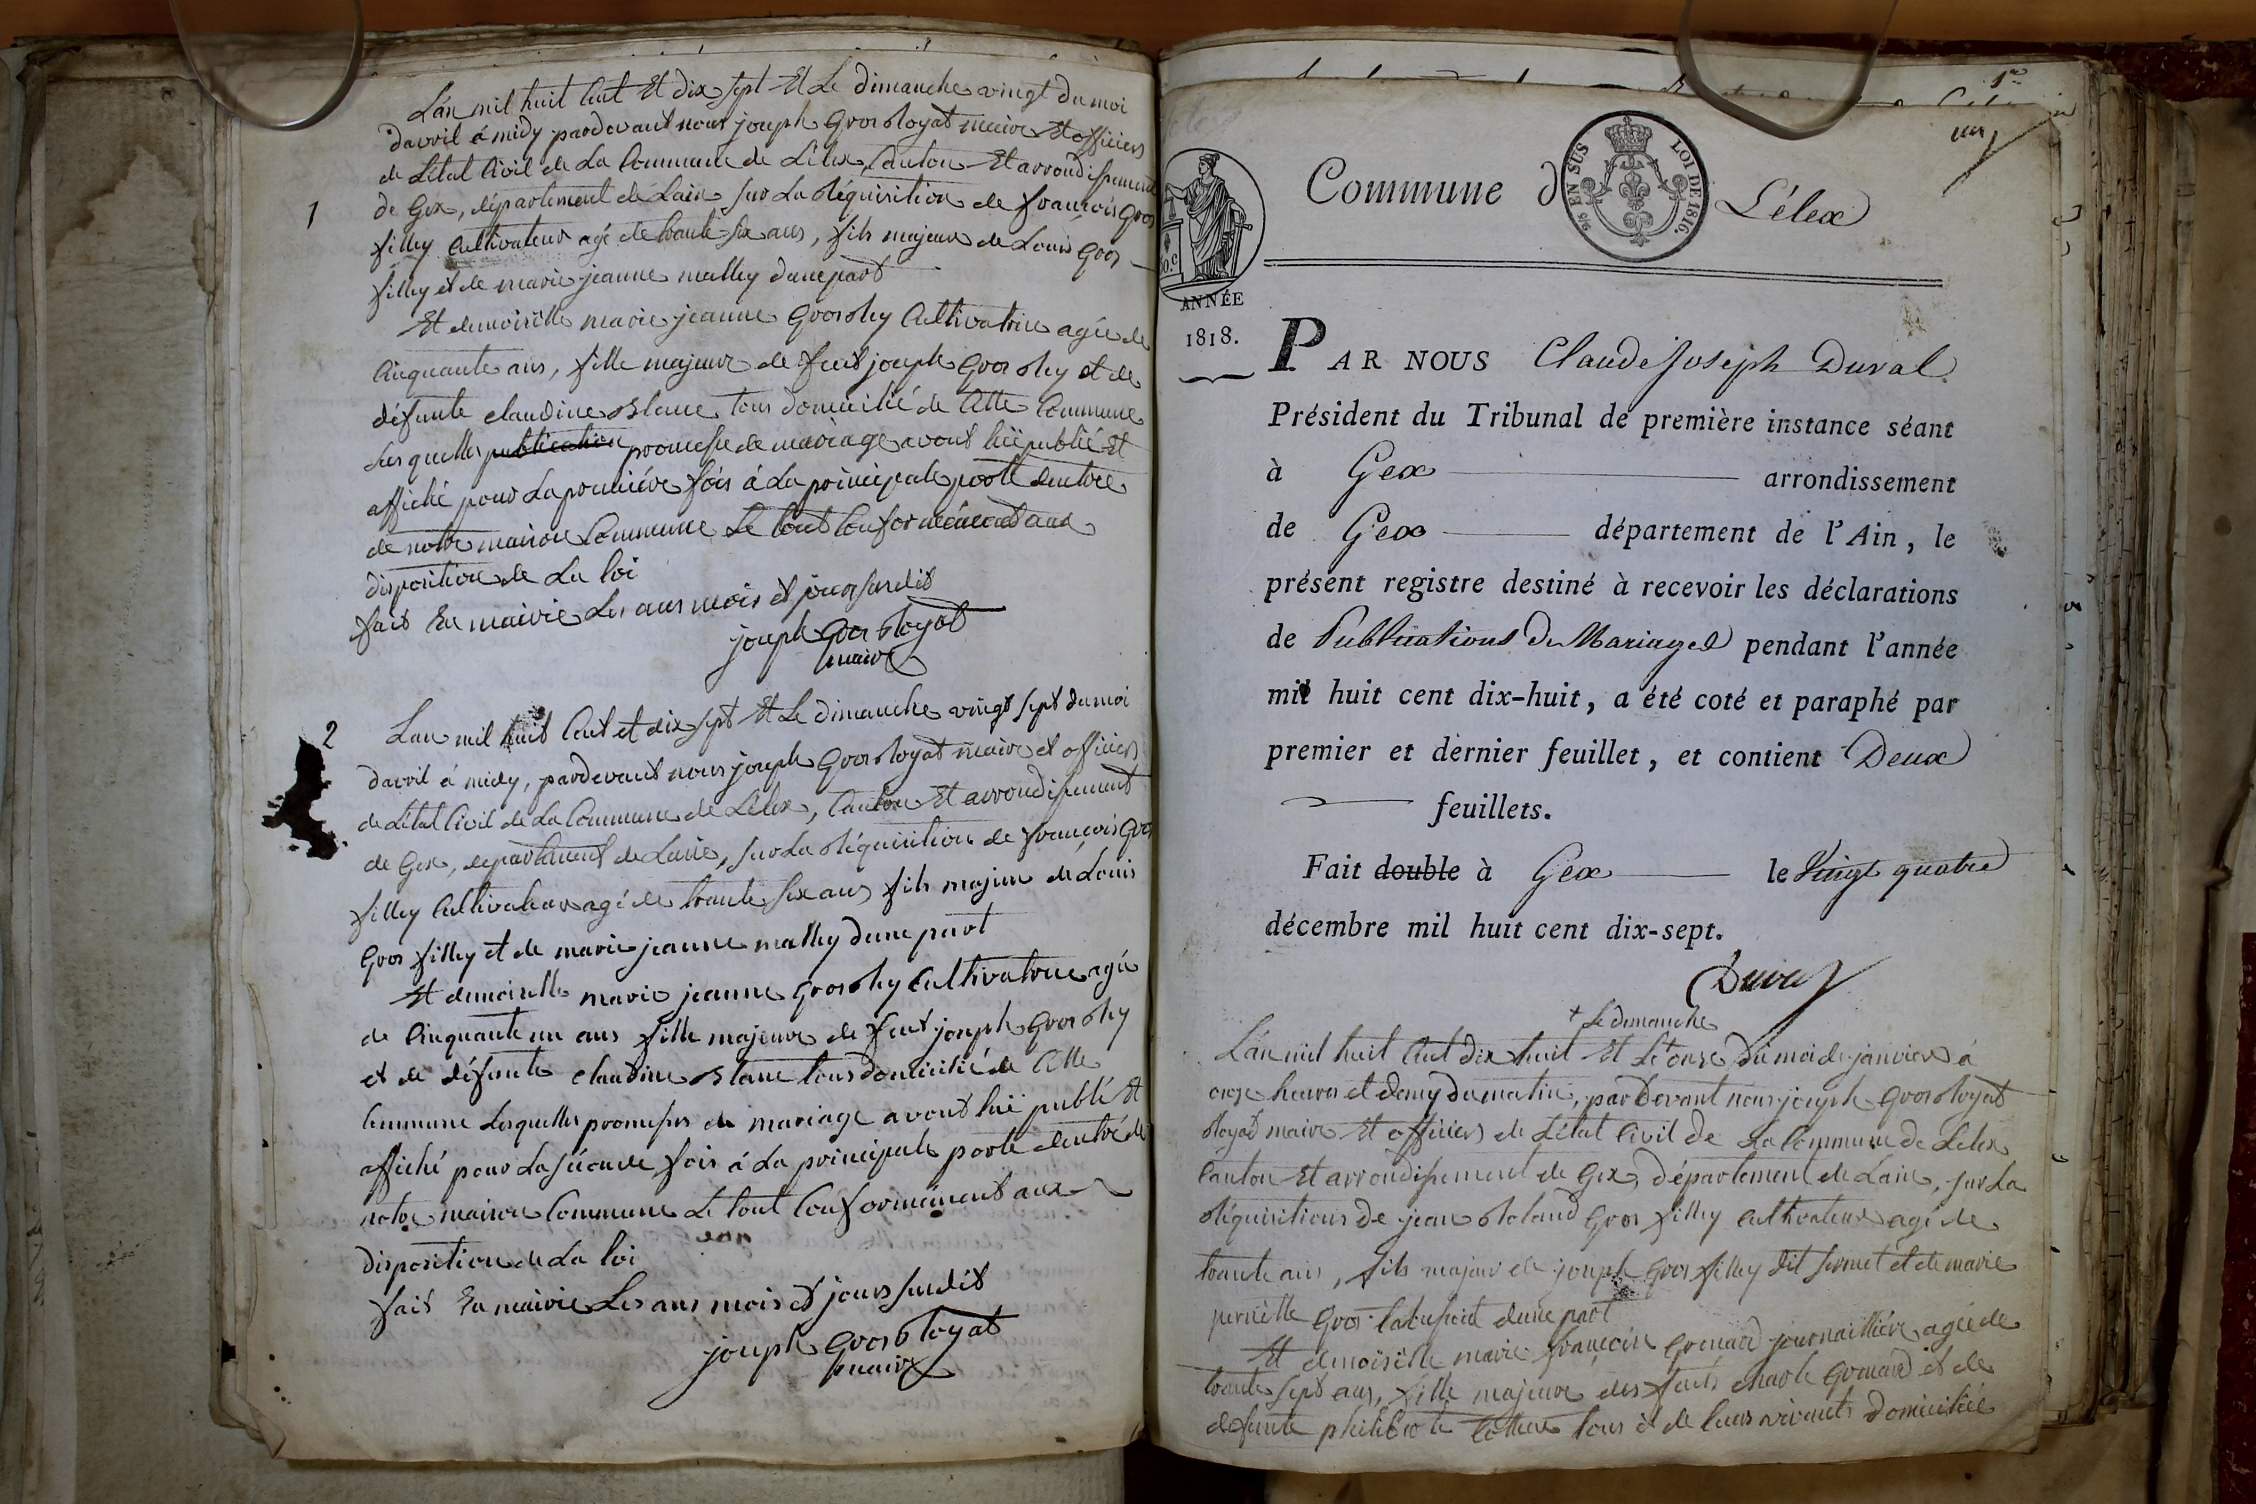 1
L'an mil huit Cent Et dix sept Et Le dimanche vingt du moi
davril á midy pardevant nous joseph Grosroyat maire Et officiers
de Létat Civil de La Commune de Lélex, Canton Et arrondissement
de Gex, département de Lain sur La Réquisition de françois Gros
filley Cultivateur agé de trante-six ans, fils majeur de Louis Gros
filley et de marie jeanne malley dune part
Et demoiselle marie jeanne Grosrey Cultivatrice agée de
Cinquante ans, fille majeure de feut joseph Gros rey et de
défunte claudine Blanc tous domicilié de Cette Commune
Lesquelles publication promesse de mariage avont lüi publié Et
affiché pour La premiére fois á La principale porte dentrée
de notre maison Commune Le tout Conformément aux
disposition de La loi
fait En mairie Les ans mois et jours susdit
joseph Gros Royat
maire
2
Lan mil huit Cent et dix sept Et Le dimanche vingt sept du moi
davril á midy, pardevant nous joseph Grosroyat maire et officiers
de Létat Civil de La Commune de Lélex, Canton Et arrondissement
de Gex, departement de Lain, sur La Réquisition de françois Gros
filley Cultivateur agé de trante six ans fils majeur de Louis
Gros filley et de marie jeanne malley dune part
Et demoiselle marie jeanne Grosrey Cultivatrice agée
de Cinquante un ans fille majeure de feut joseph Gros rey
et de défunte claudine Blanc tous domicilié de Cette
Commune Lesquelles promesses de mariage avont lüi publié Et
affiché pour La séconde fois á La principale porte dentré de
notre maison Commune Le tout Conformément aux
disposition de La loi
fait En mairie Les ans mois et jours susdit
joseph Gros Royat
maire
1er
un
Commune d Lélex
% EN SUS LOI DE 1816.
50.c
ANNÉE
1818.
PAR NOUS Claude Joseph Duval
Président du Tribunal de première instance séant
à Gex arrondissement
de Gex département de l'Ain, le
présent registre destiné à recevoir les déclarations
de Publications de Mariages pendant l'année
mil huit cent dix-huit, a été coté et paraphé par
premier et dernier feuillet, et contient Deux
feuillets.
Fait double à Gex le Vingt quatre
décembre mil huit cent dix-sept.
Duval
+ Le dimanche
L'an mil huit Cent dix huit Et Le onze du moi de janvier á
onze heures et demy du matin, par Devant nous joseph Grosroyat
Royat maire Et officiers de Létat Civil de La Commune de Lelex
Canton Et arrondissement de Gex, département de Lain, sur La
Réquisitions de jean Roland Gros filley Cultivateur agé de
trante ans, fils majeur de joseph Gros filley dit et de marie
pernette Gros dune part
Et demoiselle marie françoise Grenard journailliére agée de
trante sept ans, fille majeure des feuts charle Grenard et de
defunte philiberte tous de leurs vivants domiciliée